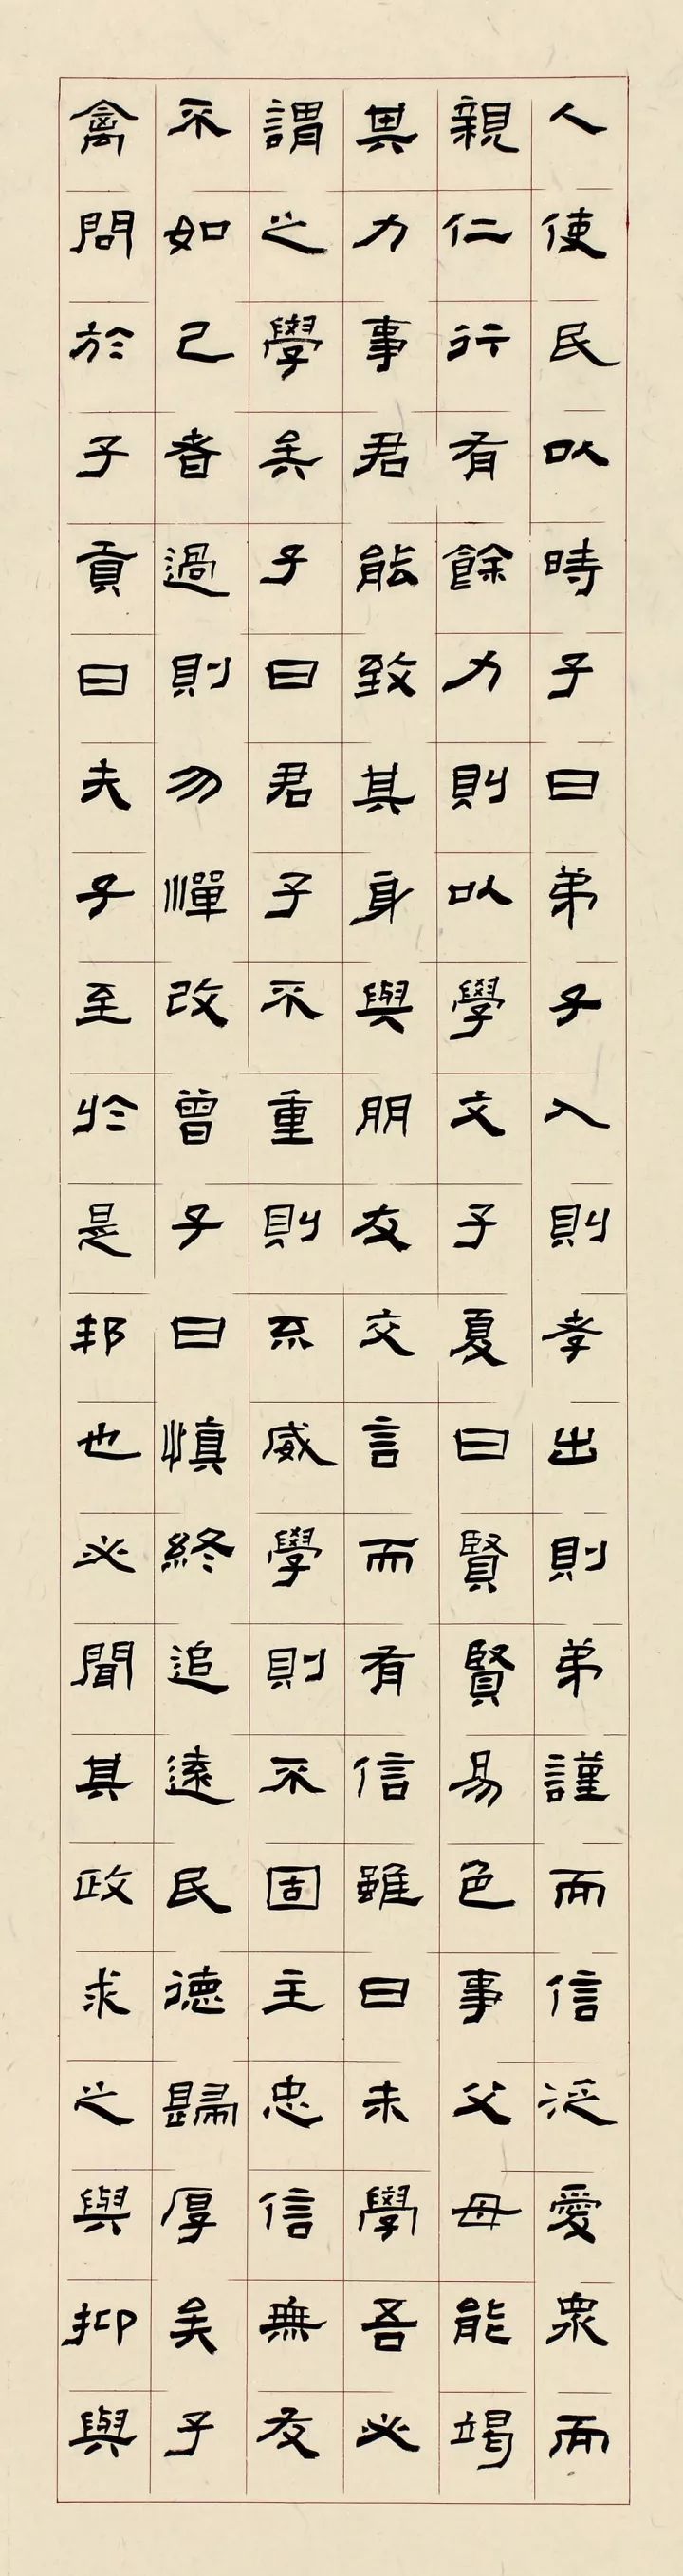 人使民以時子曰弟子入則孝出則弟謹而信泛愛衆而
親仁行有餘力則以學文子夏曰賢賢易色事父母能竭
其力事君能致其身與朋友交言而有信雖曰未學吾必
謂之學矣子曰君子不重則不威學則不固主忠信無友
不如己者過則勿憚改曾子曰慎終追遠民德歸厚矣子
禽問於子貢曰夫子至於是邦也必聞其政求之與抑與